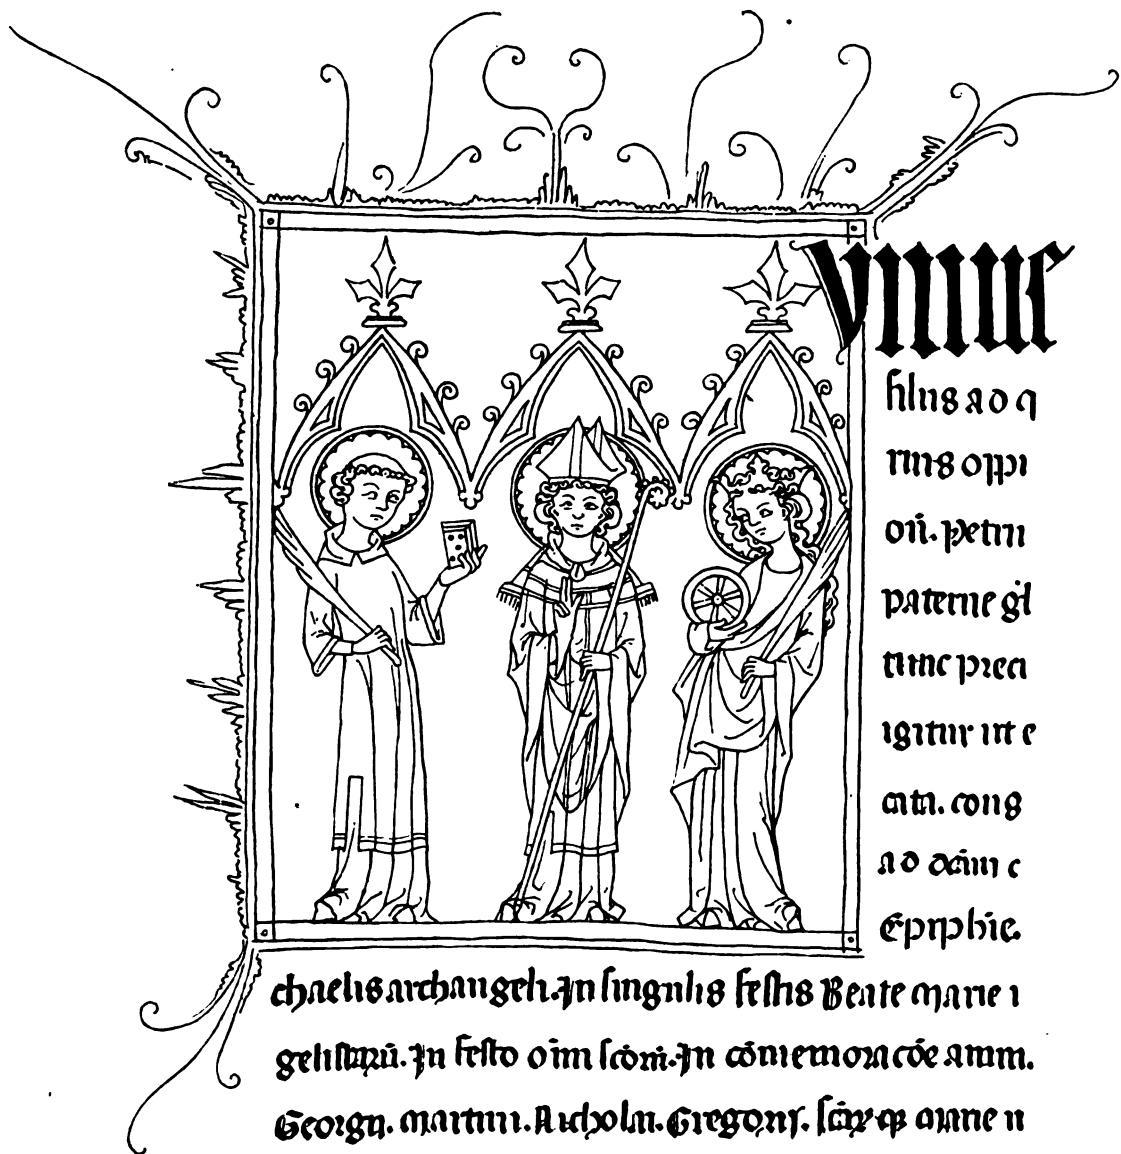 Vniue
filius a o q
rius oppi
oñ. petru
paterne gl
tunc preci
igitur ut e
cata. cong
a d decim c
Epiphie.
chaelis archangeli. In singulis festis Beate marie i
gelistarū. In festo oīm scōrū. In cōmemoracōe anim.
Georgii. martini. Nicholai. Gregorii. marie u